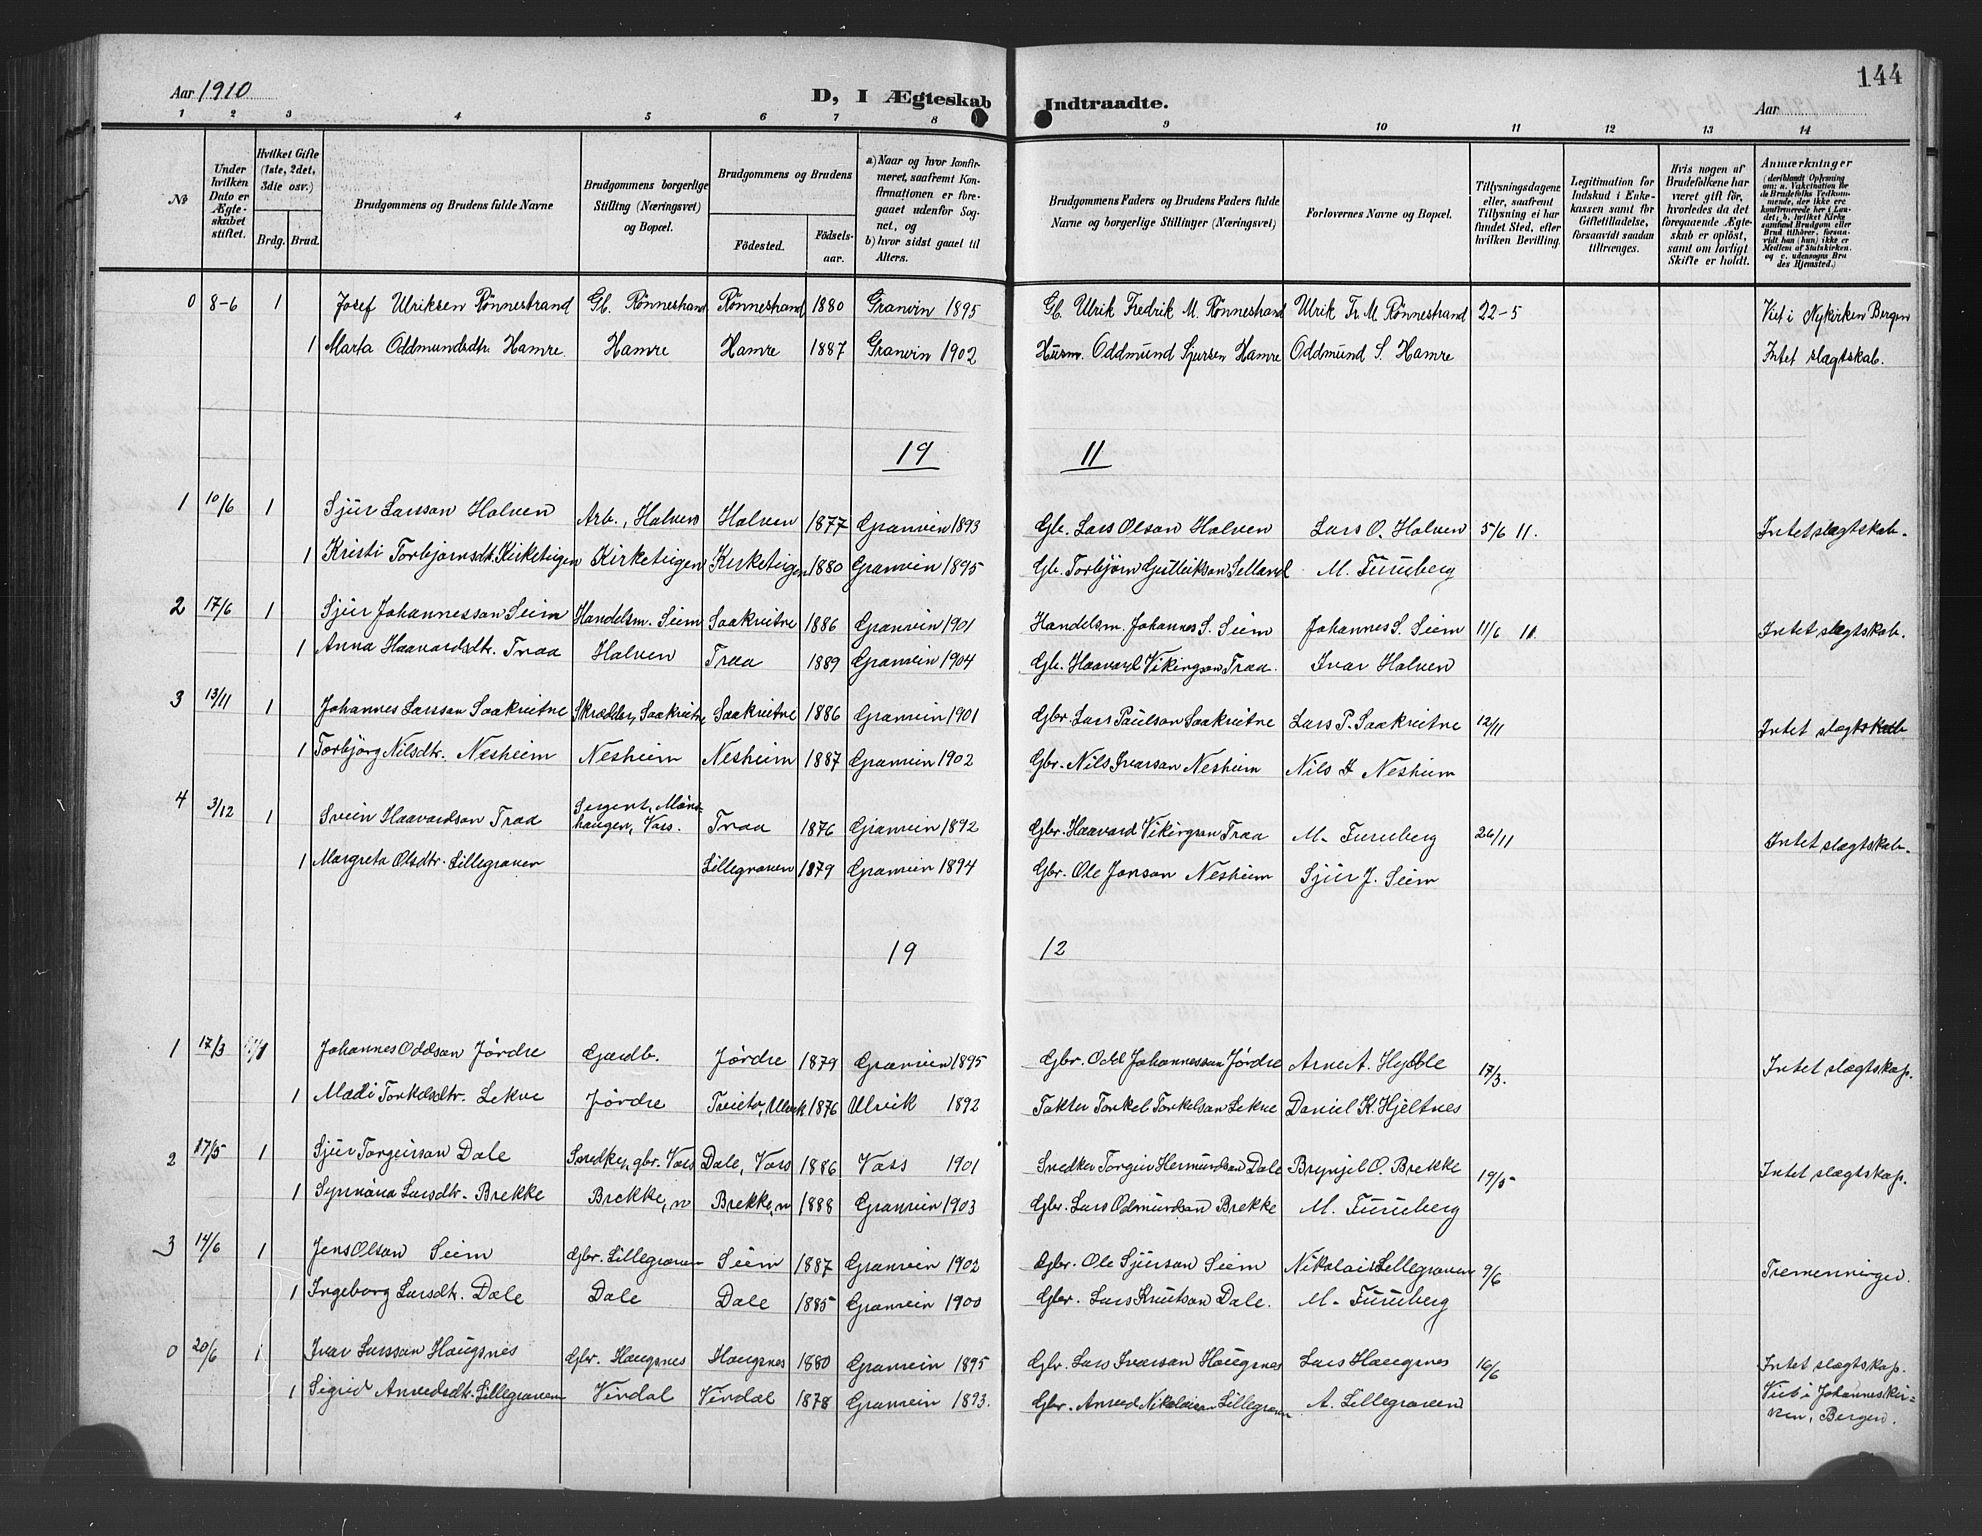 144
Aar 1910 D, I Ægteskab Indtraadte. Aar
1 2 3 4 5 6 7 8 9 10 11 12 13 14
No
Under hvilken Dato er Ægteskabet stiftet.
Hvilket Gifte (1ste, 2det, 3die osv.)
Brdg. Brud.
Brudgommens og Brudens fulde Navne
Brudgommens borgerlige Stilling (Næringsvei) og Bopæl.
Brudgommens og Brudens
Fødested. Fødselsaar.
a) Naar og hvor konfirmeret, saafremt Konfirmationen er foregaaet udenfor Sognet, og
b) hvor sidst gaaet til Alters.
Brudgommens Faders og Brudens Faders fulde Navne og borgerlige Stillinger (Næringsvei)
Forlovernes Navne og Bopæl.
Tillysningsdagene eller, saafremt Tillysning ei har fundet Sted, efter hvilken Bevilling.
Legitimation for Indskud i Enkekassen samt for Giftetilladelse, forsaavidt saadan tiltrænges.
Hvis nogen af Brudefolkene har været gift før, hvorledes da det foregaaende Ægteskab er opløst, samt om lovligt Skifte er holdt.
Anmærkninger (deriblandt Oplysning om: a. Vakcination for de Brudefolks Vedkommende, der ikke ere konfirmerede her i Landet; b. hvilket Kirkesamfund Brudgom eller Brud tilhører, forsaavidt han (hun) ikke er Medlem af Statskirken, og c. udensogns Brudes Hjemsted.)
0 8-6 1 Josef Ulriksen Rønnestrand Gb. Rønnestrand Rønnestrand 1880 Granvin 1895 Gb. Ulrik Fredrik M. Rønnestrand Ulrik Fr. M Rønnestrand 22-5 Viet i Nykirken Bergen
1 Marta Oddmundsdtr. Hamre. Hamre Hamre 1887 Granvin 1902 Husm. Oddmund Sjursen Hamre Oddmund S. Hamre Intet slægtskab.
19 11
1 10/6 1 Sjur Larsson Holven Arb., Holven Holven 1877 Granvin 1893 Gb. Lars Olson Holven Lars O. Holven 5/6 11. Intet slægtskab.
1 Kristi Torbjørnsdt. Kirketeigen Kirketeigen Kirketeigen 1880 Granvin 1895 Gb. Torbjørn Gulleikson Selland M. Furuberg
2 17/6 1 Sjur Johannesson Seim Handelsm. Seim Saakvitne 1886 Granvin 1901 Handelsm. Johannes S. Seim Johannes S. Seim 11/6 11. Intet slægtskab.
1 Anna Haavardsdtr. Traa Holven Traa 1889 Granvin 1904 Gb. Haavard Vikingson Traa. Ivar Holven
3 13/11 1 Johannes Larsson Saakvitne Skrædder, Saakvitne Saakvitne 1886 Granvin 1901 Gbr. Lars Paulson Saakvitne Lars P. Saakvitne 12/11 Intet slægtskab
1 Torbjørg Nilsdtr. Nesheim Nesheim Nesheim 1887 Granvin 1902 Gbr. Nils Ivarson Nesheim Nils I Nesheim
4 3/12 1 Svein Haavardson Traa Sergent, Mønshaugen, Voss. Traa 1876 Granvin 1892 Gbr. Haavard Vikingson Traa M. Furuberg 26/11 Intet slægtskab.
1 Margreta Olsdtr. Lillegraven Lillegraven 1879 Granvin 1894 Gbr. Ole Jonson Nesheim Sjur J. Seim
19 12
1 17/3 1 Johannes Oddson Jørdre Gardb. Jørdre 1879 Granvin 1895 Gbr. Odd Johannesson Jørdre Arne A. Hylble 17/3. Intet slægtskap.
1 Madi Torkelsdtr. Lekve Jørdre Tveito, Ulvik 1876 Ulvik 1892 Takter Torkel Torkelson Lekve Daniel K. Hjeltnes
2 17/5 1 Sjur Torgeirson Dale Snedker, gbr. Voss Dale, Voss 1886 Voss 1901 Snedker Torgeir Hermundson Dale Brynjel O. Brekke 19/5 Intet slægtskap.
1 Synnøva Larsdtr. Brekke Brekke, n Brekke, n 1888 Granvin 1903 Gbr. Lars Odmundson Brekke M. Furuberg
3 14/6 1 Jens Olson Seim Gbr. Lillegraven Seim 1887 Granvin 1902 Gbr. Ole Sjurson Seim Nikolai Lillegraven 9/6 Tremenninger.
1 Ingeborg Larsdt. Dale Dale Dale 1885 Granvin 1900 Gbr. Lars Knutson Dale. M. Furuberg
0 20/6 1 Ivar Larsson Haugsnes Gbr. Haugsnes Haugsnes 1880 Granvin 1895 Gbr. Lars Ivarson Haugsnes Lars Haugsnes 16/6 Intet slægtskap.
1 Sigrid Anvedsdtr. Lillegraven Virdal Virdal 1878 Granvin 1893. Gbr. Anved Nikolaison Lillegraven A. Lillegraven Viet i Johanneskirken, Bergen.